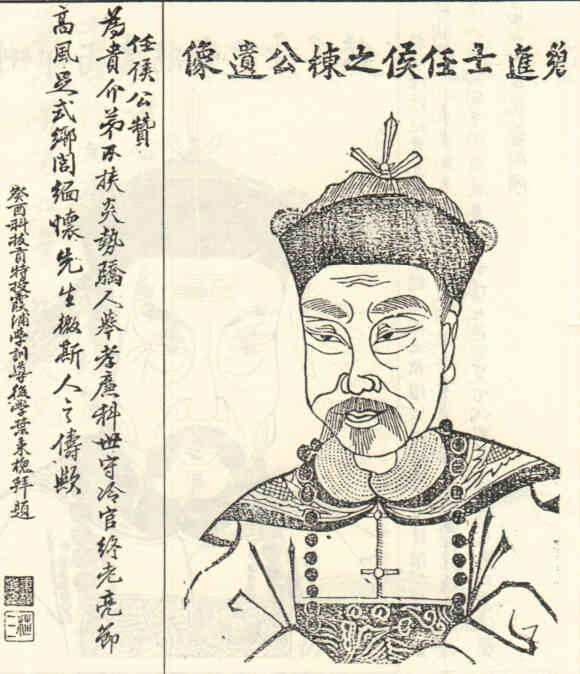 邑進士任侯之棟公遺像
任侯公贊
為貴介弟不挾炎勢驕人舉孝廉科世守冷官終老亮節
高風足式鄉閭緬懷先生微斯人之儔歟
癸酉科拔貢特授霞浦學訓導後學葉來槐拜題